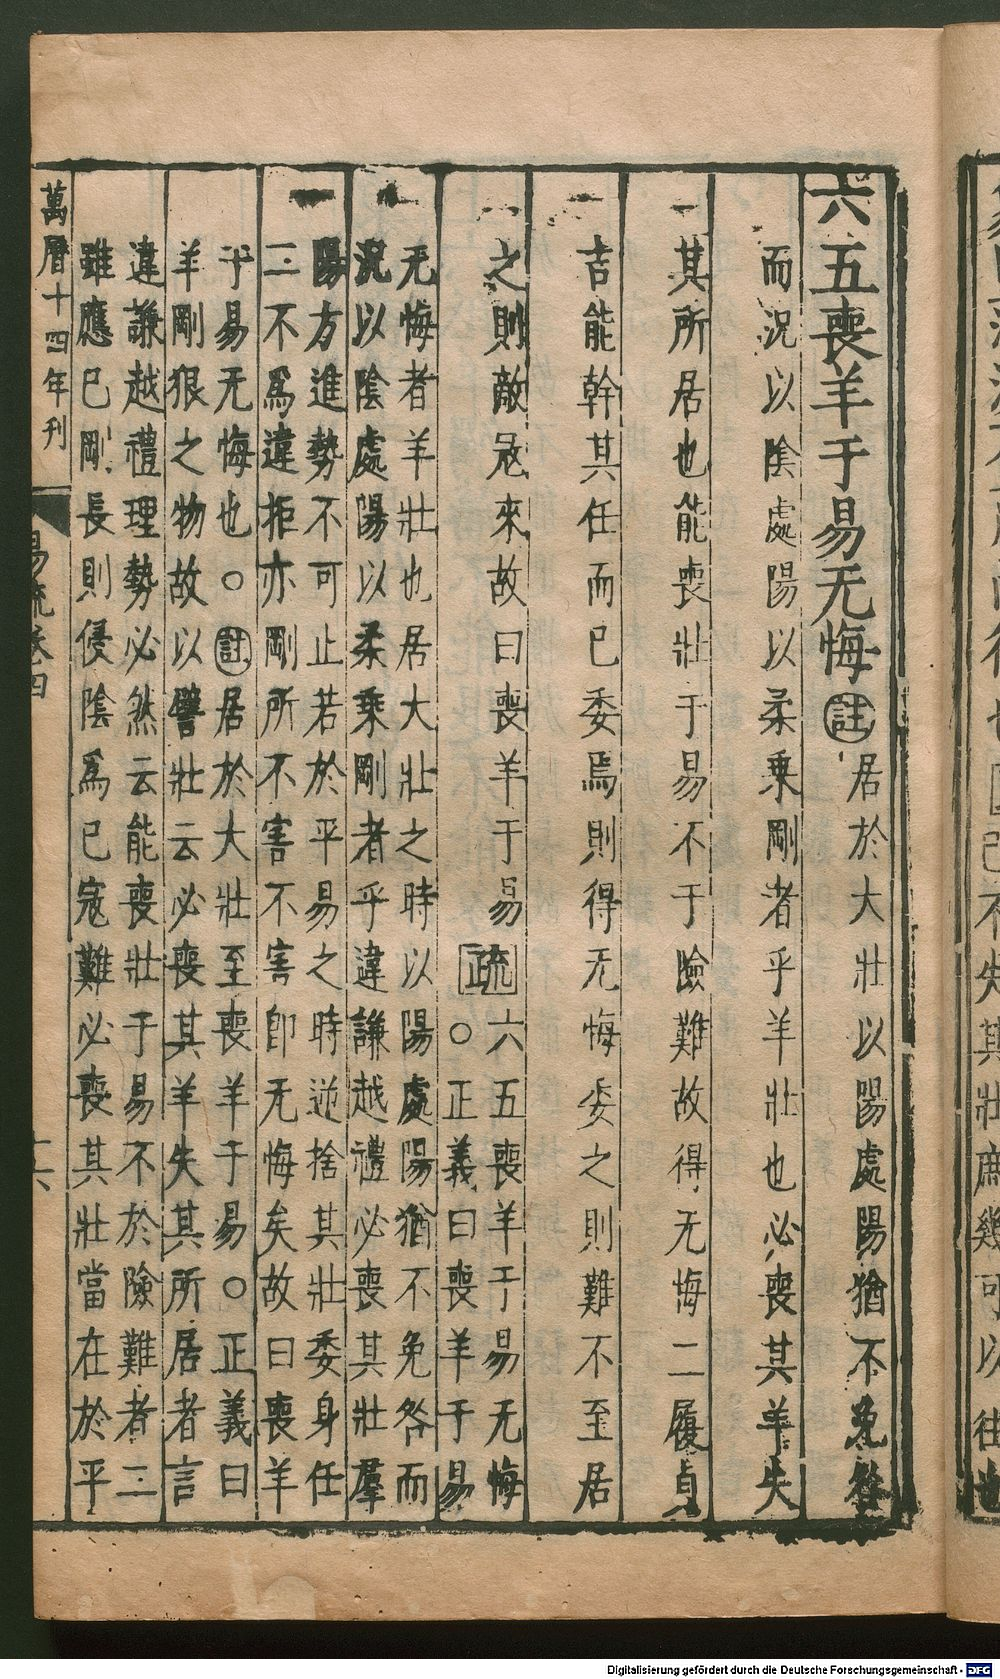 六五喪羊于易无悔㊟居於大壯以陽處陽猶不免咎
而況以陰處陽以柔乘剛者乎羊壯也必喪其羊失
其所居也能喪壯于易不于險難故得无悔二履貞
吉能幹其任而已委焉則得无悔委之則難不至居
之則敵寇來故曰喪羊于易疏六五喪羊于易无悔
○正義曰喪羊于易
无悔者羊壯也居大壯之時以陽處陽猶不免咎而
況以陰處陽以柔乘剛者乎違謙越禮必喪其壯羣
陽方進勢不可止若於平易之時逆捨其壯委身任
二不爲違拒亦剛所不害不害卽无悔矣故曰喪羊
于易无悔也○註居於大壯至喪羊于易○正義曰
羊剛狠之物故以譬壯云必喪其羊失其所居者言
違謙越禮理勢必然云能喪壯于易不於險難者二
雖應已剛長則侵陰爲已寇難必喪其壯當在於平
萬曆十四年刊
易疏卷四
十六
已不失其壯庶幾可以往也
Digitalisierung gefördert durch die Deutsche Forschungsgemeinschaft - DFG